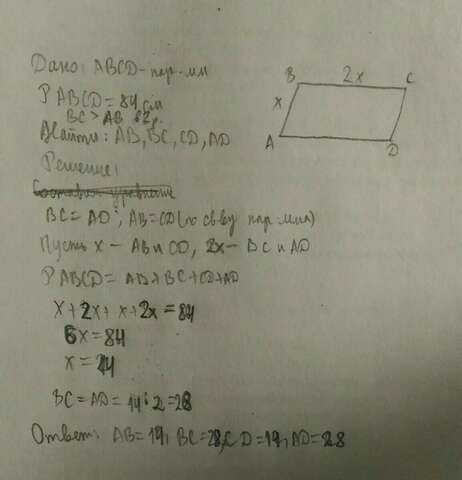 Дано: ABCD - пар-мм
P ABCD = 84 см
BC > AB в 2 р.
Найти: AB, BC, CD, AD
Решение:
Составим уравнение
BC = AD; AB = CD (по св-ву пар-мма)
Пусть x - AB и CD, 2x - BC и AD
P ABCD = AD + BC + CD + AD
x + 2x + x + 2x = 84
6x = 84
x = 14
BC = AD = 14 · 2 = 28
Ответ: AB = 14, BC = 28, CD = 14, AD = 28
B 2x C
x
A D